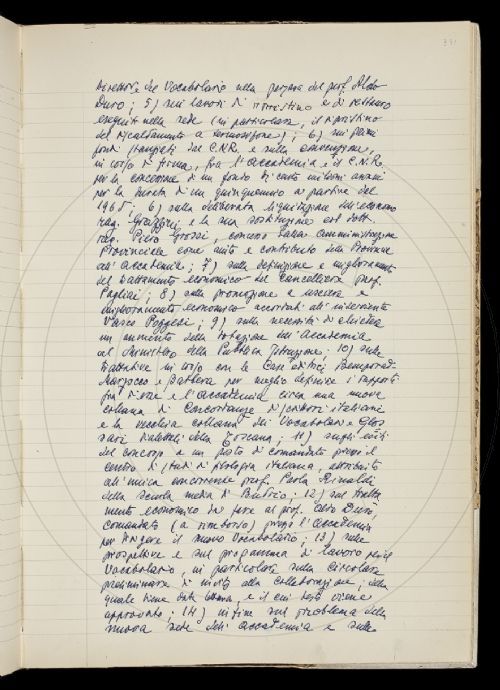 331
Direttore del Vocabolario nella persona del prof. Aldo
Duro; 5) sui lavori di ripristino e di restauro
eseguiti nella sede (in particolare, il ripristino
del riscaldamento a termosifone); 6) sui primi
fondi stanziati dal C.N.R. e sulla convenzione,
in corso di firma, fra l'Accademia e il C.N.R.
per la concessione di un fondo di cento milioni annui
per la durata di un quinquennio a partire dal
1965; 6) sulla deliberata liquidazione dell'economo
rag. Grazzini e la sua sostituzione col dott.
rag. Piero Grossi, concesso dalla Amministrazione
Provinciale come aiuto e contributo della Provincia
all'Accademia; 7) sulla definizione e miglioramento
del trattamento economico del Cancelliere prof.
Pagliai; 8) sulla promozione a usciere e
miglioramento economico accordati all'inserviente
Vasco Poggesi; 9) sulla necessità di chiedere
un aumento della dotazione dell'Accademia
al Ministero della Pubblica Istruzione; 10) sulle
trattative in corso con le Case editrici Bemporad-
Marzocco e Barbera per meglio definire i rapporti
fra di esse e l'Accademia circa una nuova
collana di Concordanze di scrittori italiani
e la vecchia collana dei Vocabolari e Glos
sari dialettali della Toscana; 11) sugli esiti
del concorso a un posto di comandato presso il
centro di studi di filologia italiana, attribuito
all'unica concorrente prof. Paola Rinaldi
della scuola media di; 12) sul tratta
mento economico da fare al prof. Aldo Duro,
comandato (a rimborso) presso l'Accademia
per dirigere il nuovo Vocabolario; 13) sulle
prospettive e sul programma di lavoro per il
Vocabolario, in particolare sulla circolare
preliminare di invito alla collaborazione, della
quale viene data lettura, e il cui testo viene
approvato; 14) infine sul problema della
nuova sede dell'Accademia e sulle